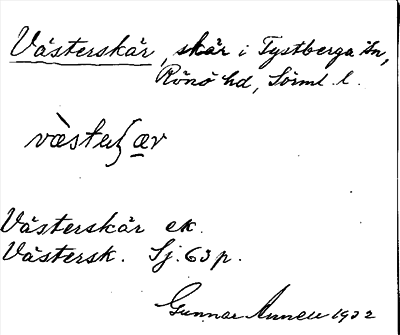 Västerskär, skär i Tystberga sn,
Rönö hd, Sörml. l.
Västerskär ek.
Västersk. Sj. 63 p.
Gunnar 1932